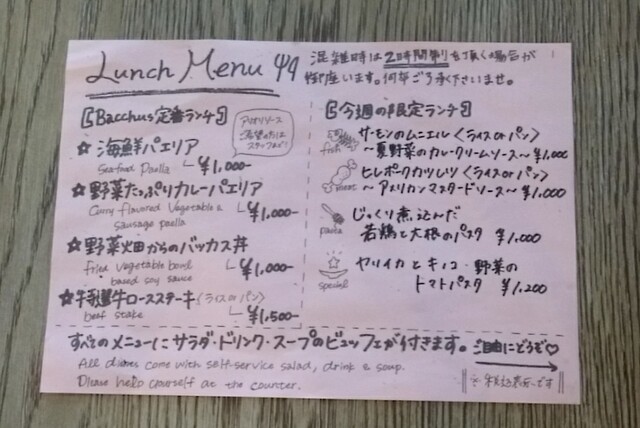 Lunch Menu
混雑時は2時間制りを頂く場合が
御座います。何卒ご了承下さいませ。
【Bacchus定番ランチ】
アリオリソース
ご希望の方は
スタッフまで!
☆ 海鮮パエリア
Seafood Paella
¥1,000-
☆ 野菜たっぷりカレーパエリア
Curry flavored Vegetable &
sausage paella
¥1,000-
☆ 野菜畑からのバッカス丼
fried vegetable bowl
based soy sauce
¥1,000-
☆ 牛ロースステーキ〈ライス or パン〉
beef stake
¥1,500-
【今週の限定ランチ】
fish
サーモンのムニエル〈ライス or パン〉
～夏野菜のカレークリームソース～ ¥1,000
meat
ヒレポークカツレツ〈ライス or パン〉
～アメリカンマスタードソース～ ¥1,000
pasta
じっくり煮込んだ
若鶏と大根のパスタ ¥1,000
special
ヤリイカとキノコ・野菜の
トマトパスタ ¥1,200
すべてのメニューにサラダ・ドリンク・スープのビュッフェが付きます。ご自由にどうぞ♡
All dishes come with self-service salad, drink & soup.
Please help yourself at the counter.
※税込表示です